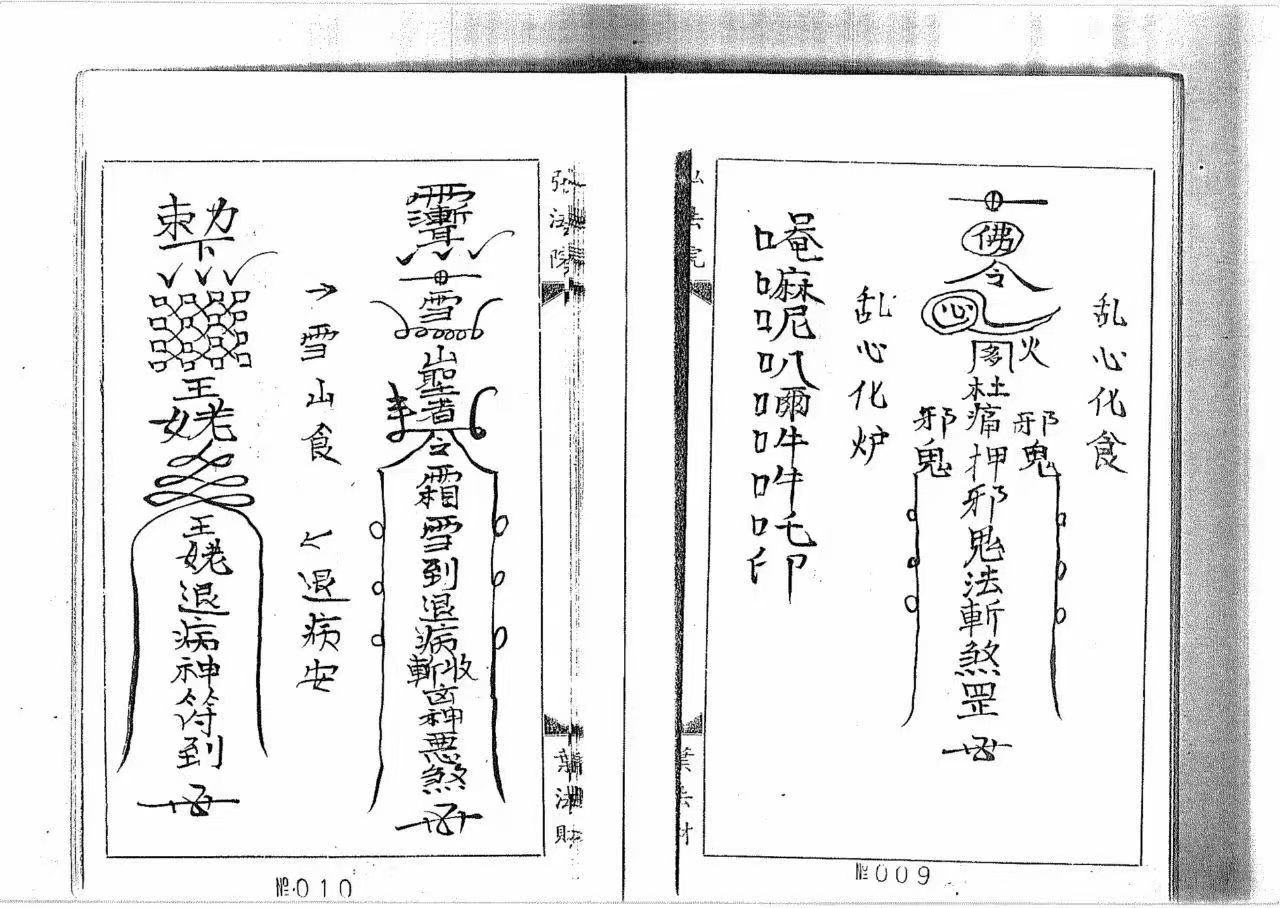 乱心化食
佛
令
心
火
杜痛押邪鬼法斬煞罡
邪鬼
邪鬼
乱心化炉
唵嘛呢叭
№009
弘法院
葉法財
雪
山聖者
令
霜雪到退病
斬收
凶神悪煞
→雪山食
←退病安
勅下
王姥
王姥退病神符到
№010